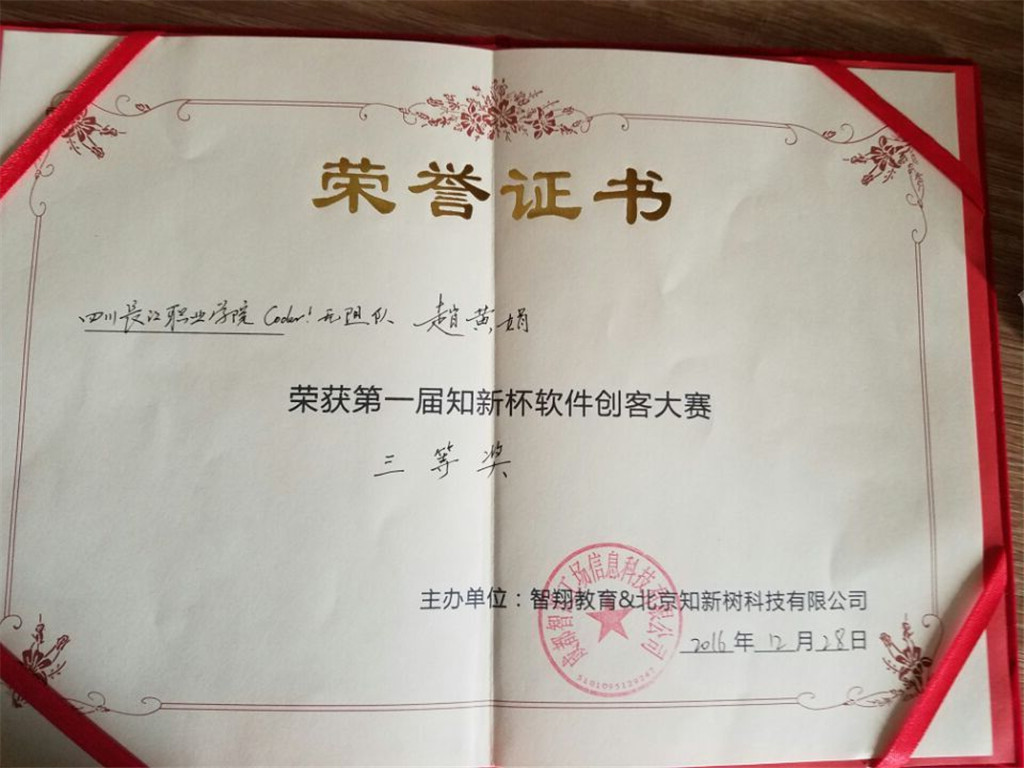 荣誉证书
四川长江职业学院 Coder! 无阻队 赵黄娟
荣获第一届知新杯软件创客大赛
三等奖
主办单位：智翔教育&北京知新树科技有限公司
2016年12月28日